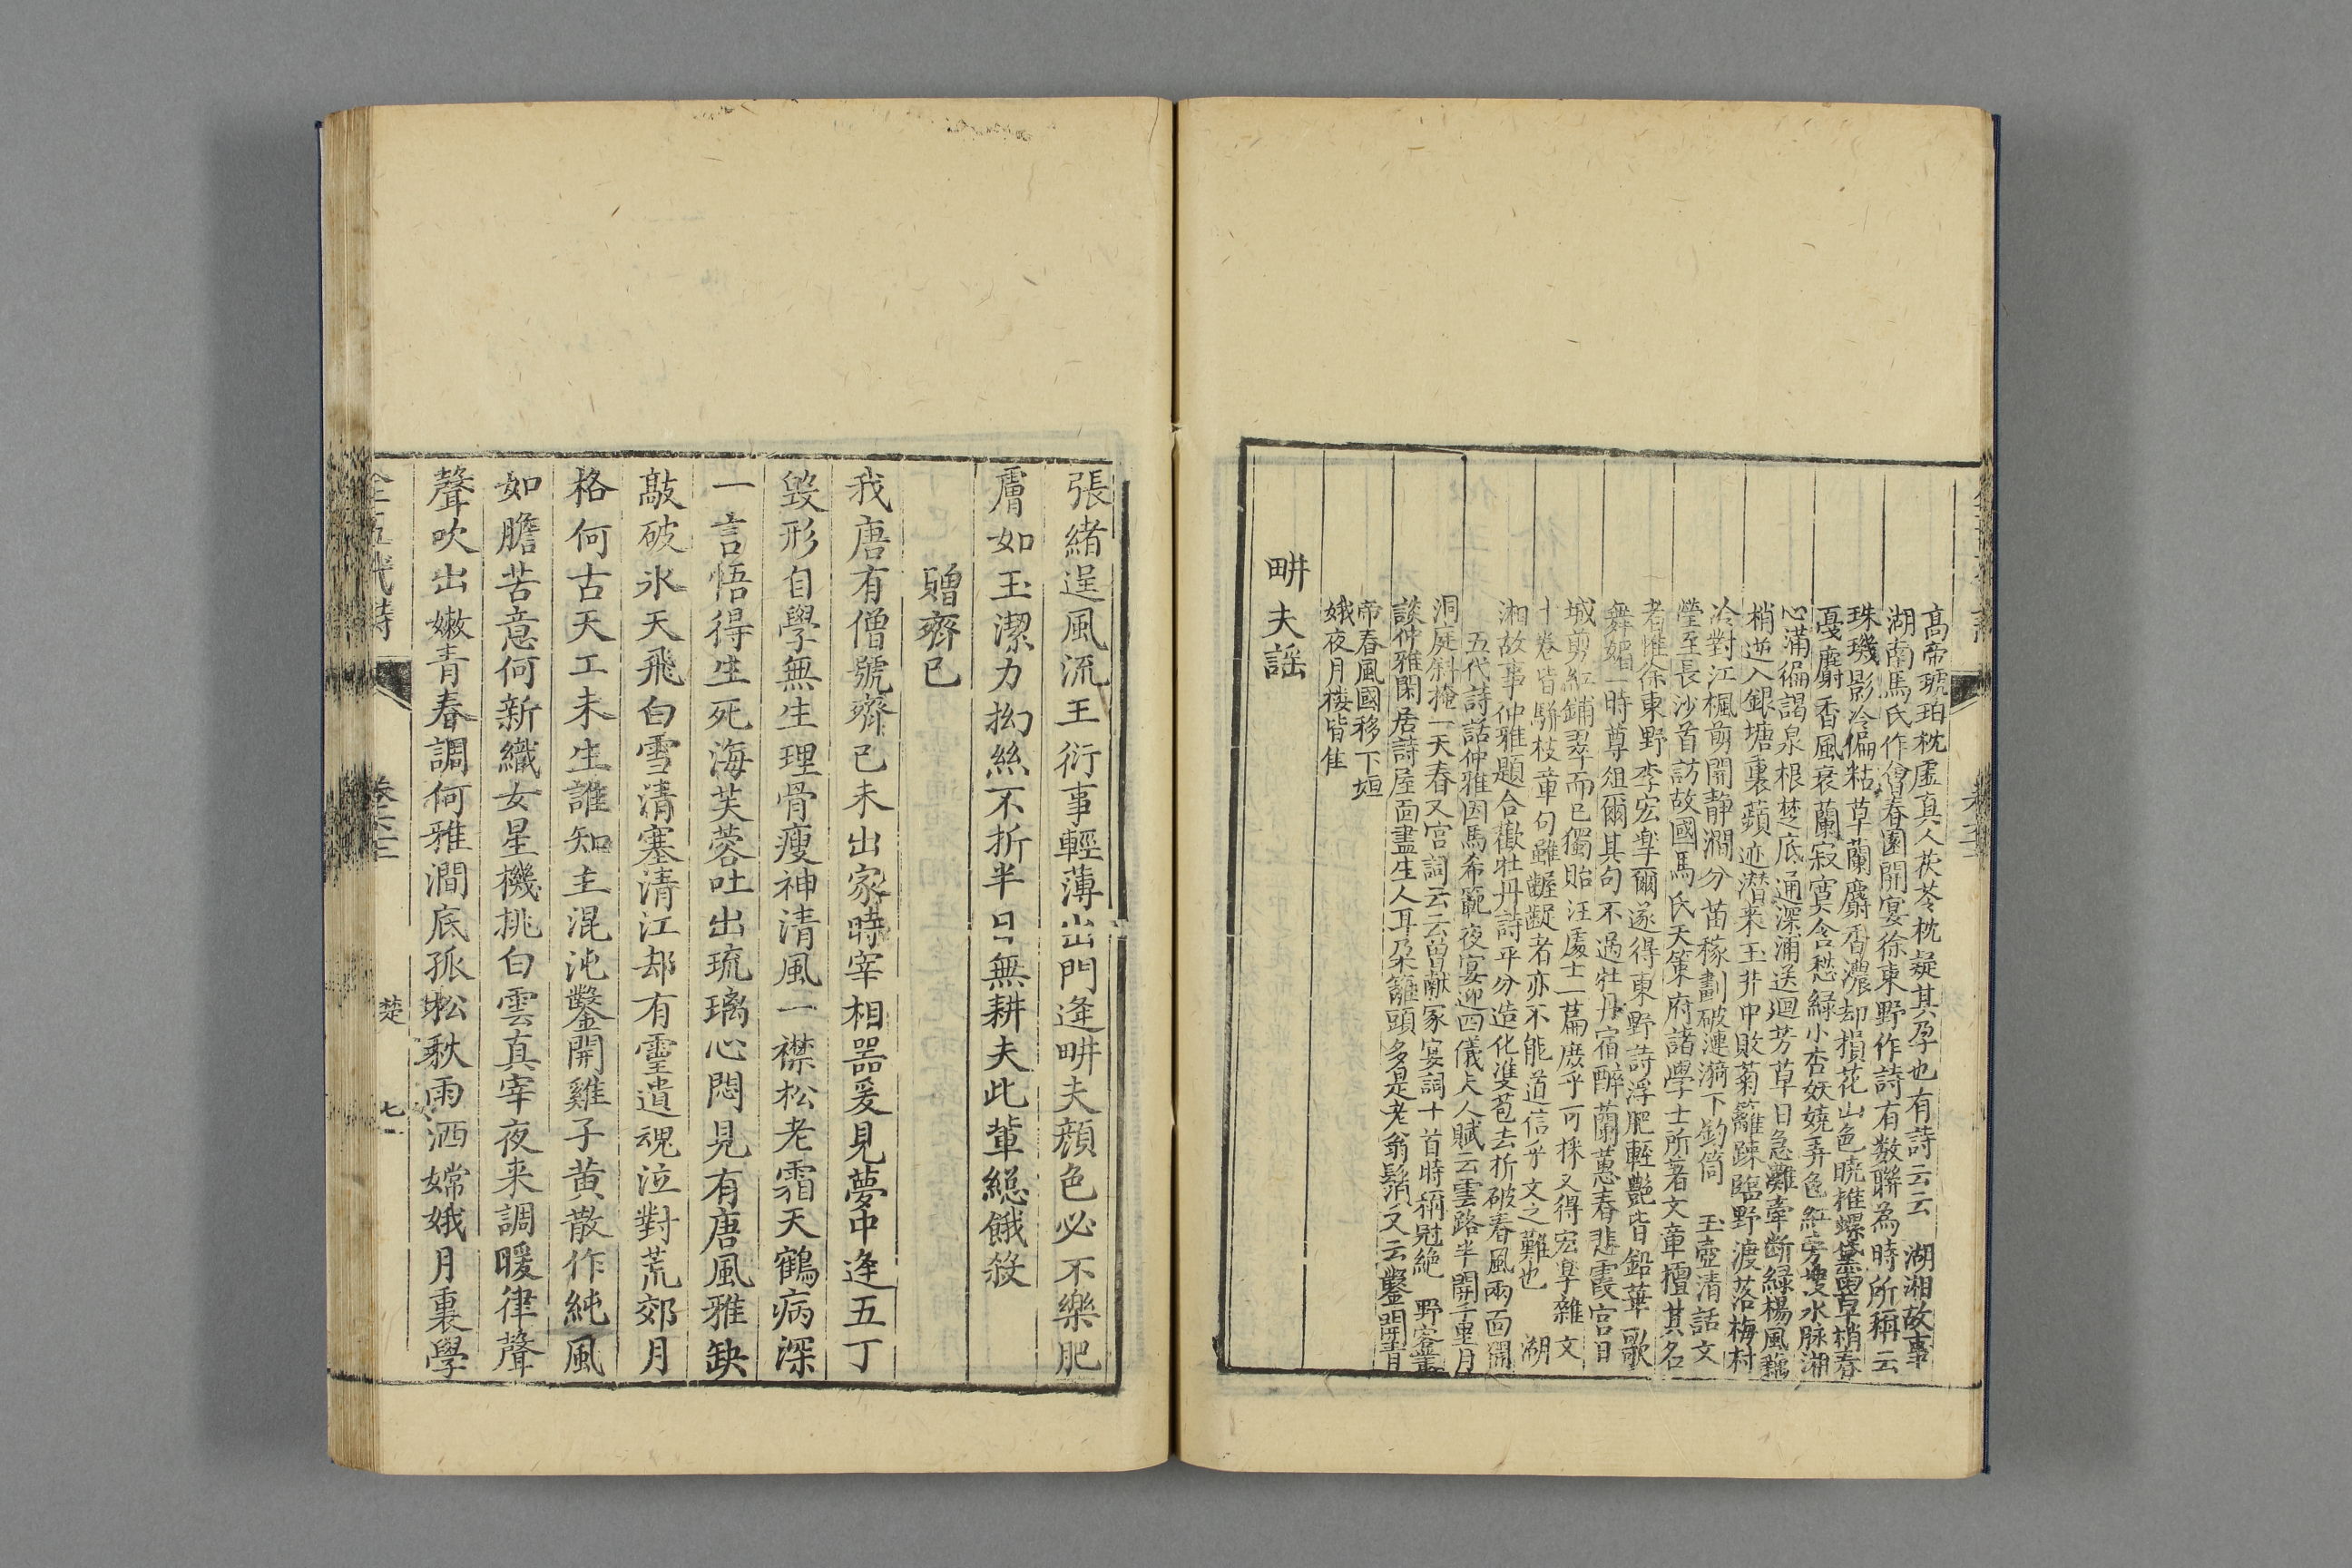 高帝琥珀枕虛真人茯苓枕疑其孕也有詩云云　湖湘故事
湖南馬氏作會春園開宴徐東野作詩有数聯為時所稱云
珠璣影冷偏粘草蘭麝香濃却損花山色曉堆螺黛雨草梢春
戞麝香風衰蘭寂寞含愁緑小杏妖嬈弄色紅旁搜水脉湘
心滿徧謁泉根楚底通深浦送迴芳草日急灘牽断緑楊風藕
梢逆入銀塘裏蘋迹潜来玉井中敗菊籬踈臨野渡落梅村
冷對江楓剪開静澗分苗稼劃破漣漪下釣筒　玉壺清話文
瑩至長沙首訪故國馬氏天策府諸學士所著文章擅其名
者惟徐東野李宏皐爾遂得東野詩浮肥輕艶皆鉛華歌
舞媚一時尊俎爾其句不過牡丹宿醉蘭蕙春悲霞宮日
城剪紅鋪翠而已獨貽汪處士一篇庶乎可採又得宏皐雜文
十卷皆駢枝章句雖齷齪者亦不能道信乎文之難也　湖
湘故事仲雅題合歡牡丹詩平分造化䨇苞去折破春風兩面開
五代詩話仲雅因馬希範夜宴迎四儀夫人賦云雲路半開千里月
洞庭斜掩一天春又宫詞云云曽献冢宴詞十首時稱冠絶　野客叢
談仲雅閑居詩屋面盡生人耳朶籬頭多是老翁鬚又云鑿開青
帝春風國移下姮
娥夜月楼皆隹
畊夫謡
張緒逞風流王衍事輕薄出門逢畊夫顔色必不樂肥
膚如玉潔力抝絲不折半日無耕夫此輩緫餓殺
贈齊已
我唐有僧號齊已未出家時宰相噐爰見夢中逢五丁
毁形自學無生理骨瘦神清風一襟松老霜天鶴病深
一言悟得生死海芙蓉吐出琉璃心悶見有唐風雅缺
敲破氷天飛白雪清塞清江却有靈遺魂泣對荒郊月
格何古天工未生誰知主混沌鑿開雞子黄散作純風
如膽苦意何新織女星機挑白雲真宰夜来調暖律聲
聲吹出嫩青春調何雅澗底孤松秋雨洒嫦娥月裏學
全五代詩　卷六十二　楚　七一